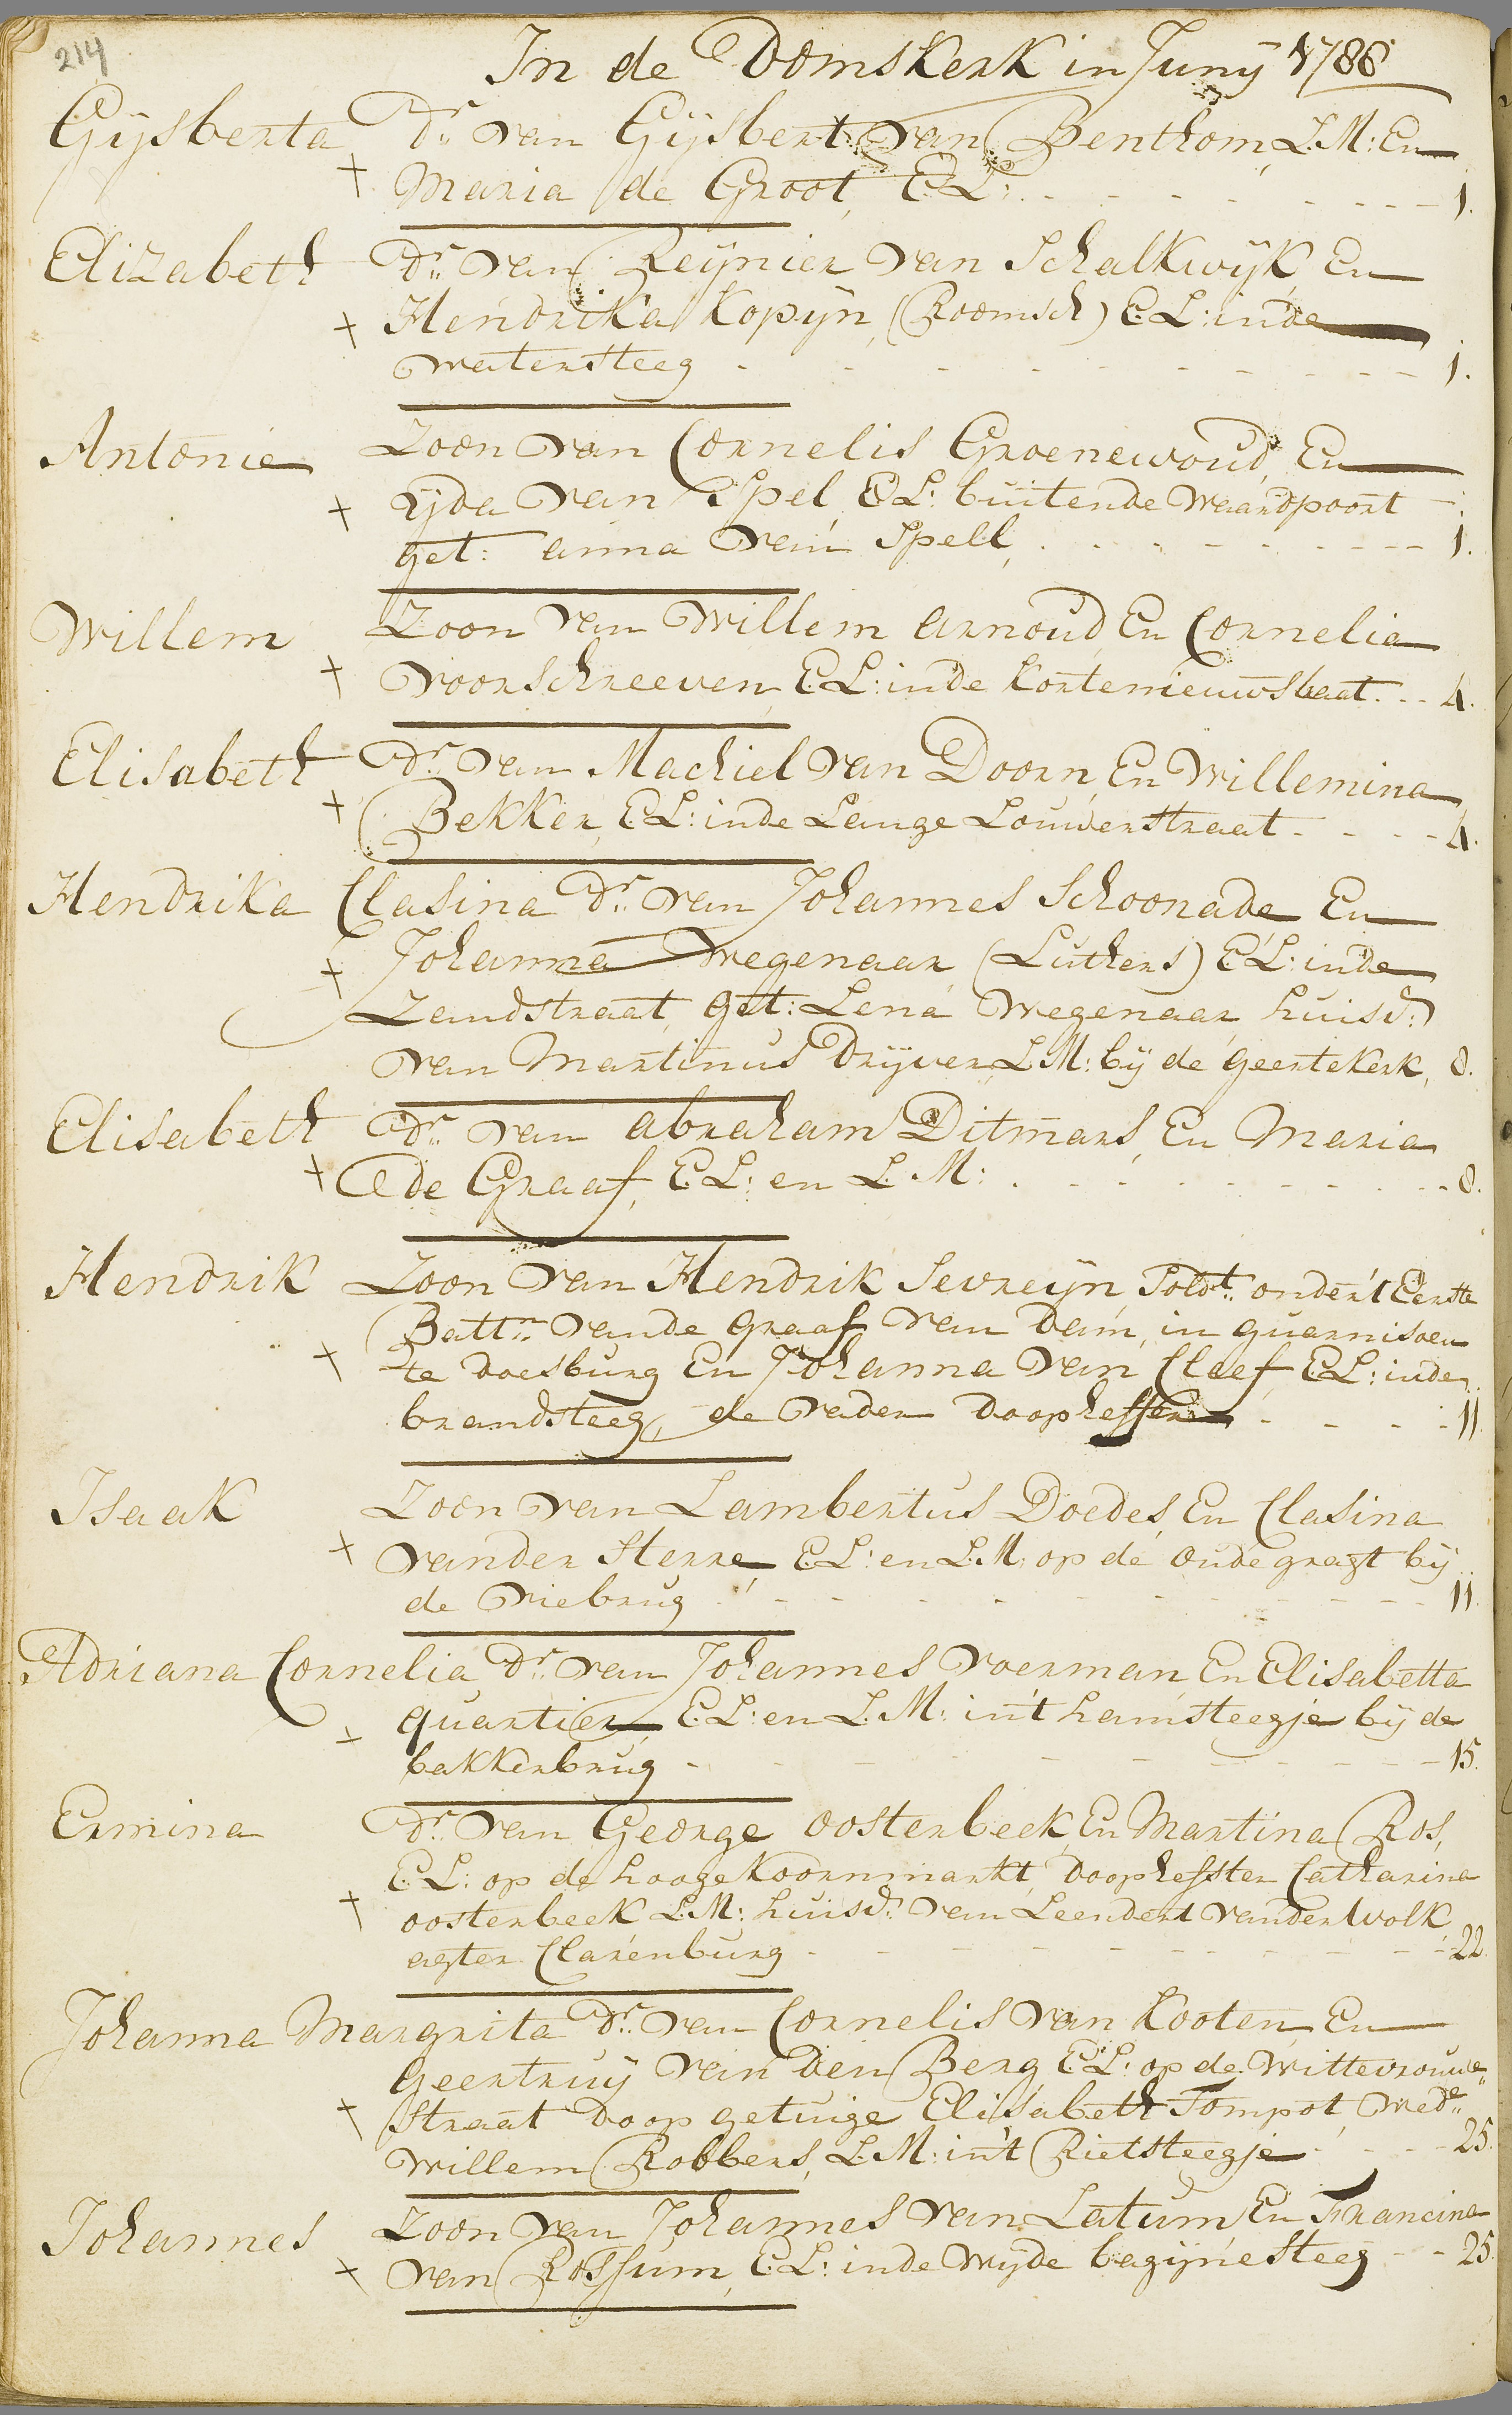 214
In de Domskerk in Juny 1786
Gijsberta Dr van Gijsbert van Benthom, L.M: En
+ Maria de Groot, E.L: - - - - - - - 1.
Elizabeth Dr. van Reijnier van Schalkwijk, En
+ Hendrika Kopijn, (Roomsch) E.L: in de
watersteeg - - - - - - - - - 1.
Antonie Zoon van Cornelis Groenewoud, En
+ Ijda van Spel, E.L: buitende Waardpoort
get: anna van Spell, - - - - - - - 1.
Willem Zoon van Willem Arnoud, En Cornelia
+ voorschreeven, E.L: inde Kortenieuwstraat - - 4.
Elisabeth Dr. van Machiel van Doorn, En Willemina
+ Bekker, E.L: inde Lange Louwerstraat - - - - 4.
Hendrika Clasina Dr. van Johannes Schoonade En
+ Johanna Wegenaar (Luthers) E.L: inde
Zandstraat, get: Lena Wegenaar huisv:
van Martinus Drijver, L.M: bij de geertekerk, 8.
Elisabeth Dr. van Abraham Ditmars, En Maria
+ de Graaf, E.L: en L.M: - - - - - - - 8.
Hendrik Zoon van Hendrik Sevreijn, Soldt. onder't Eerste
Battn. vande graaf van Dam, in guarnisoen
+ te Doesburg En Johanna van Cleef, E.L: inde
brandsteeg, de vader Doopheffer - - - - 11
Isaak Zoon van Lambertus Doedes, En Clasina
+ vander Sterre, E.L: en L.M: op de Oude gragt bij
de Viebrug - - - - - - - - - 11.
Adriana Cornelia, Dr. van Johannes Voerman En Elisabetta
+ Quartier, E.L: en L.M: in't hamsteegje bij de
bakkerbrug - - - - - - - - - 15.
Ermina Dr. van George Oosterbeek, En Martina Ros,
E.L: op de hooge Koornmarkt, Doophefster Catharina
+ Oosterbeek L.M: huisv: van Leendert vander Wolk
agter Clarenburg - - - - - - - - - 22.
Johanna Margrita Dr. van Cornelis van Kooten, En
Geertruij van Den Berg, E.L: op de Wittevrouwe
+ Straat Doop getuige Elisabeth Tompot, Wede.
Willem Robbers, L.M: in't Rietsteegje - - - - 25.
Johannes Zoon van Johannes van Latum, En Francina
+ van Rossum, E.L: inde Wijde begijnesteeg - - 25.